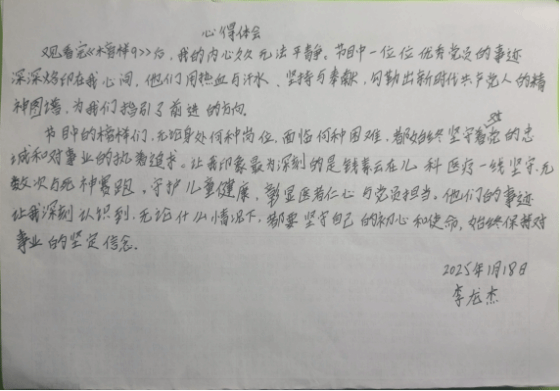 心得体会
观看完《榜样9》后，我的内心久久无法平静。节目中一位位优秀党员的事迹
深深烙印在我心间，他们用热血与汗水、坚持与奉献，勾勒出新时代共产党人的精
神图谱，为我们指引了前进的方向。
节目中的榜样们，无论身处何种岗位，面临何种困难，都始终坚守着党的忠
诚和对事业的执着追求。让我印象最为深刻的是钱素云在儿科医疗一线坚守，无
数次与死神赛跑，守护儿童健康，彰显医者仁心与党员担当。他们的事迹
让我深刻认识到，无论什么情况下，都要坚守自己的初心和使命，始终保持对
事业的坚定信念。
2025年1月18日
李龙杰